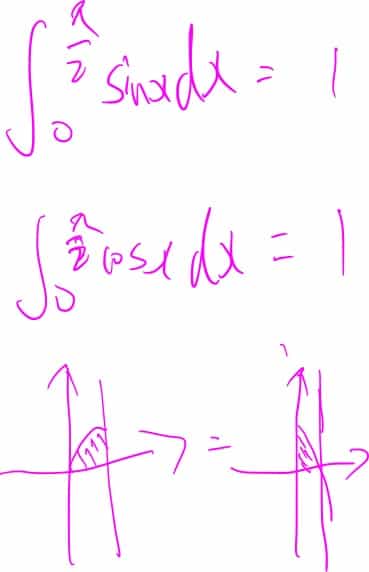 ∫₀^(π/2) sinx dx = 1
∫₀^(π/2) cosx dx = 1
=